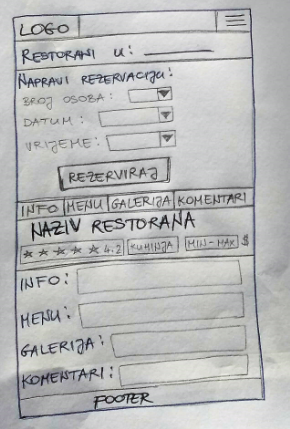 LOGO
RESTORANI U:
NAPRAVI REZERVACIJU:
BROJ OSOBA:
DATUM:
VRIJEME:
REZERVIRAJ
INFO MENU GALERIJA KOMENTARI
NAZIV RESTORANA
★★★★★ 4.2 KUHINJA MIN-MAX $
INFO:
MENU:
GALERIJA:
KOMENTARI:
FOOTER